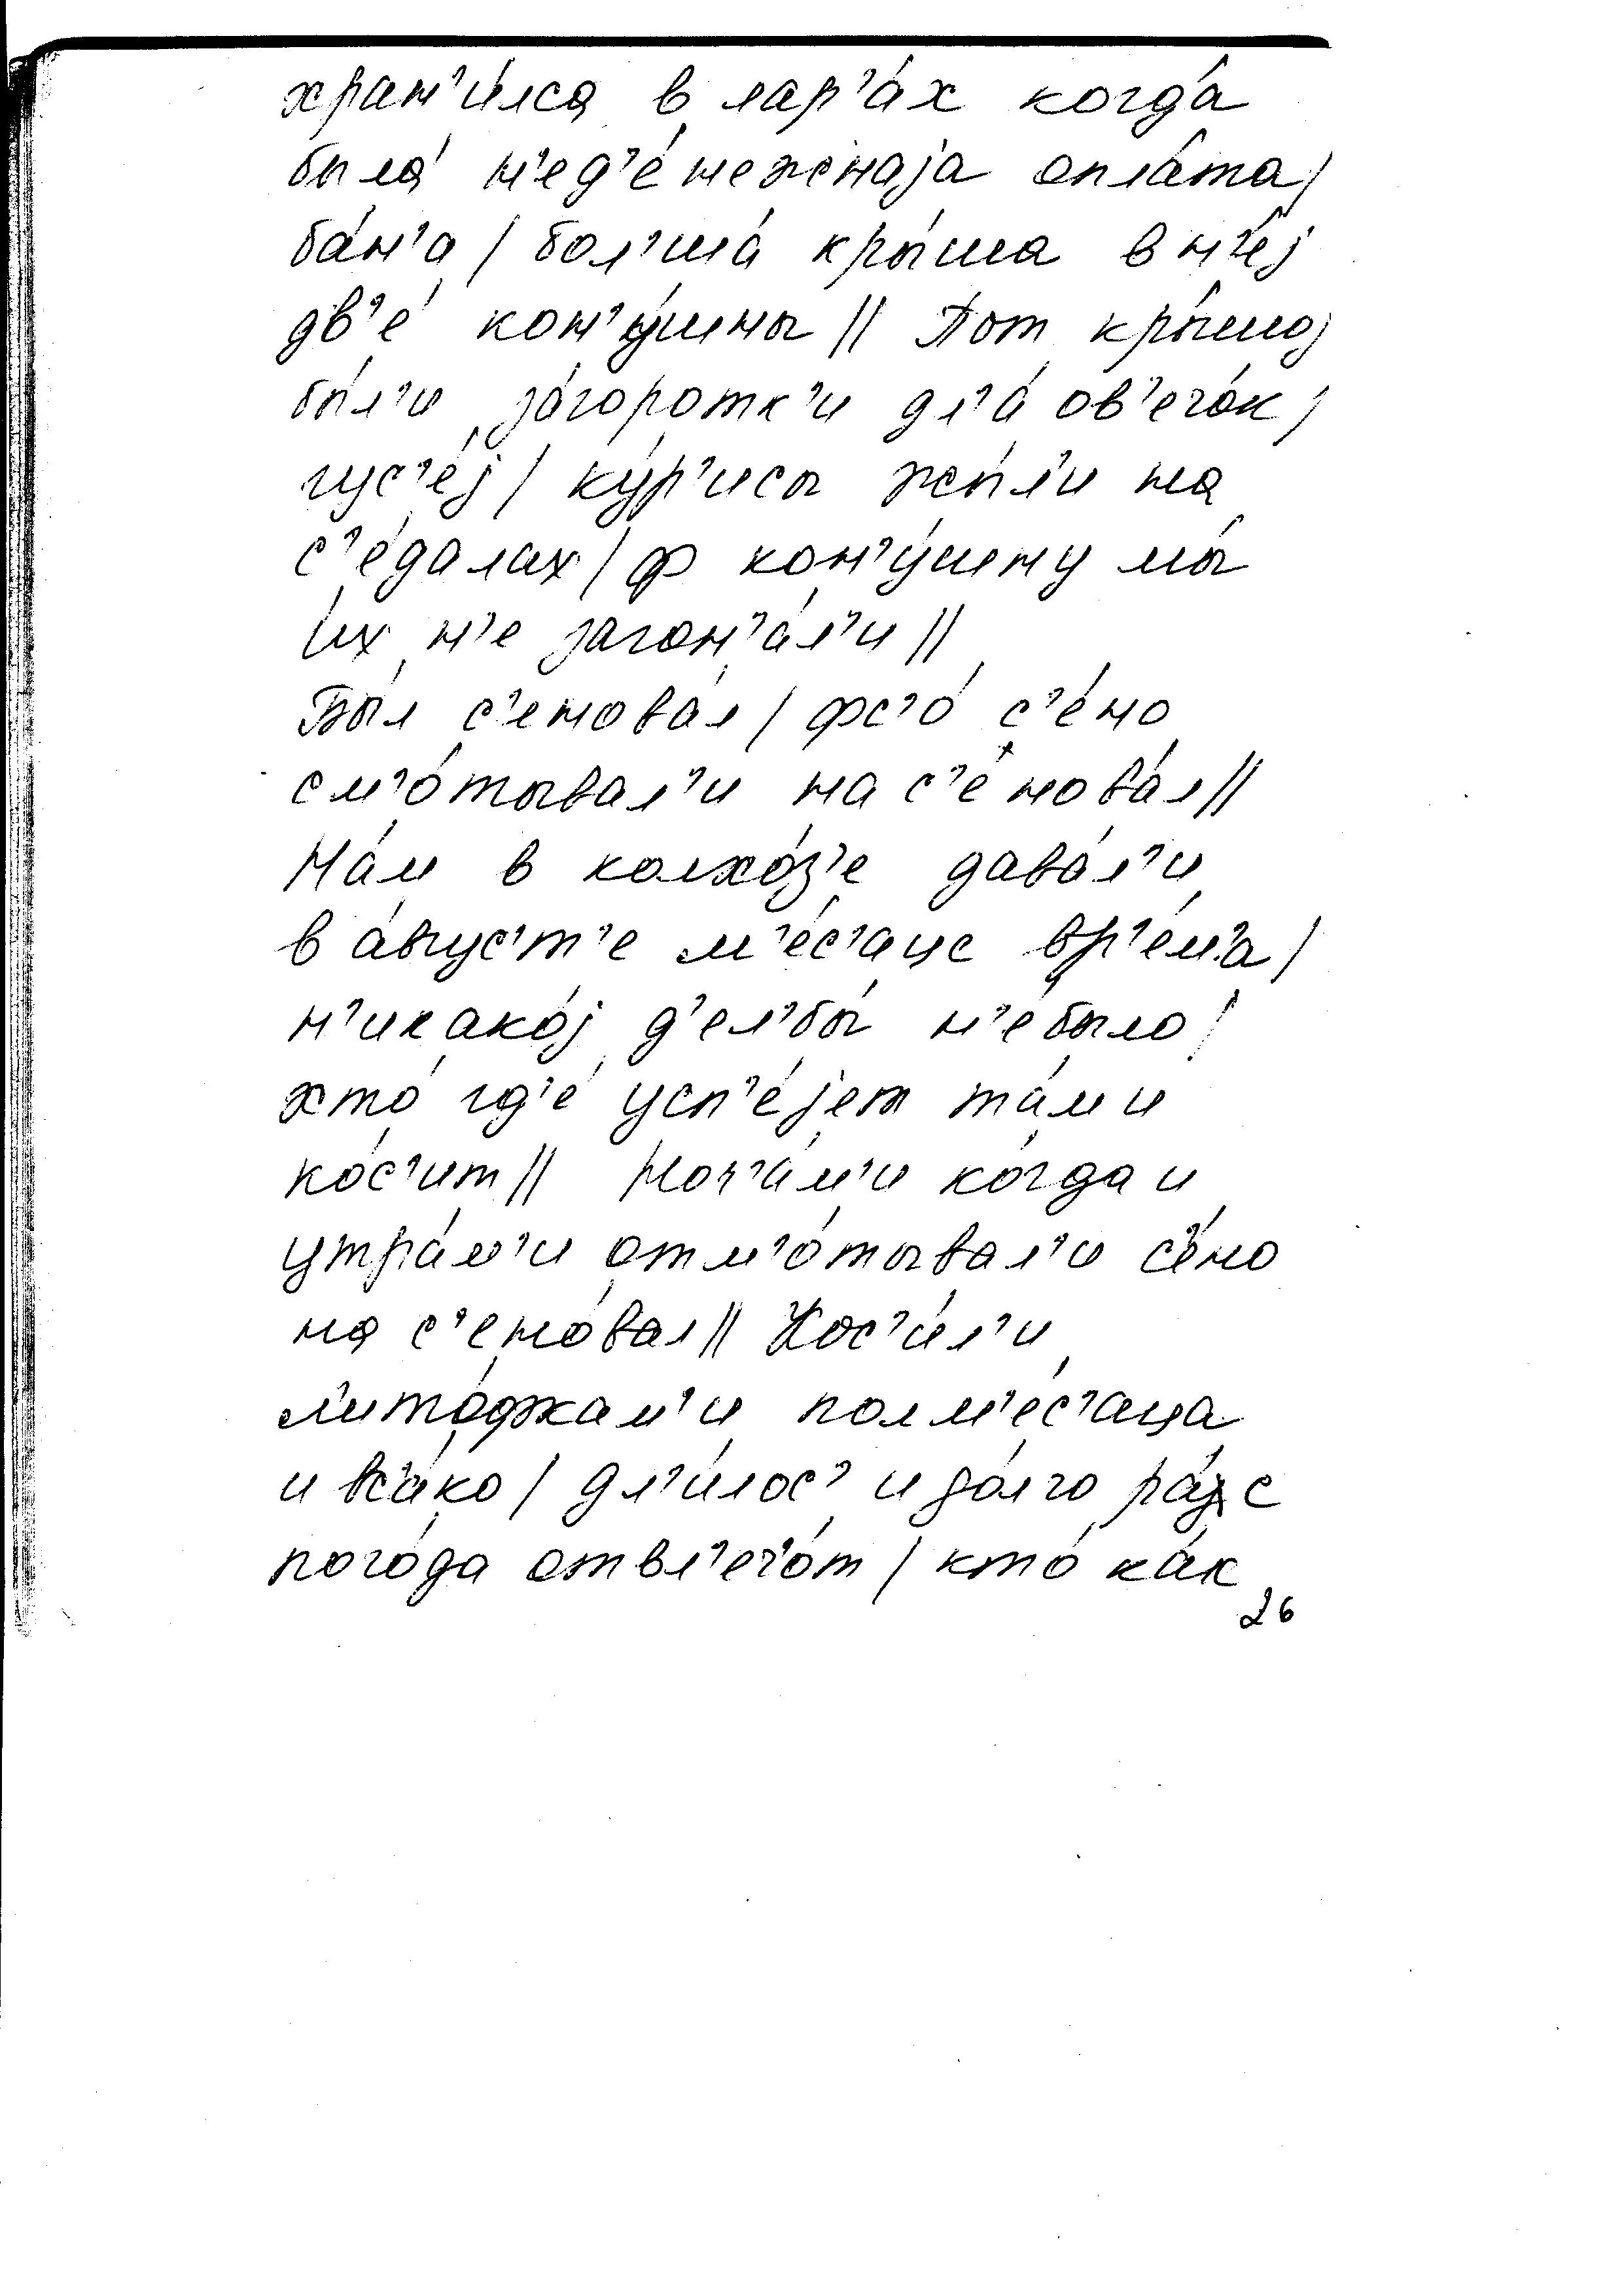 хран'и́лса в лар'а́х когда́
была́ н'ед'е́нежнаjа опла́та /
ба́н'а / бол'ша́ кры́ша в н'е́j
дв'е́ кон'у́шны // Пот кры́шоj
бы́л'и за́горотк'и дл'а́ ов'ечо́к /
гус'е́j / ку́р'исы жы́л'и на
с'е́далах / ф кон'у́шну мы́
и́х н'е загон'а́л'и //
Бы́л с'енова́л / фс'о́ с'е́но
см'о́тывал'и на с'енова́л //
На́м в колхо́з'е дава́л'и
в а́вгус'т'е м'е́с'аце вр'е́м'а /
н'икако́j д'ел'бы́ н'е́было /
хто́ гд'е́ усп'е́jет та́м и
ко́с'ит // Ноч'а́м'и когда́ и
утра́м'и отм'о́тывал'и с'е́но
на с'енова́л // Кос'и́л'и
л'ито́фкам'и полм'е́с'аца
и вс'а́ко / дл'и́лос' и до́лго ра́з с
пого́да отвл'еч'о́т / кто́ ка́к
26